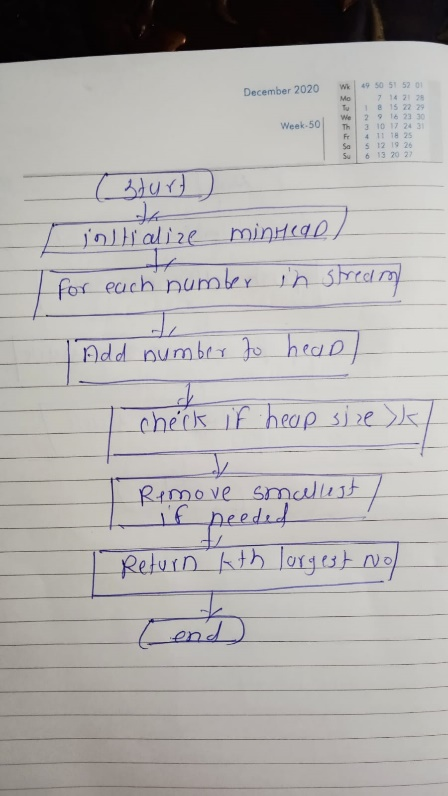 December 2020
Week-50
Wk 49 50 51 52 01
Mo 7 14 21 28
Tu 1 8 15 22 29
We 2 9 16 23 30
Th 3 10 17 24 31
Fr 4 11 18 25
Sa 5 12 19 26
Su 6 13 20 27
Start
initialize minHeap
For each number in stream
Add number to heap
check if heap size >k
Remove smallest
if needed
Return kth largest No
end